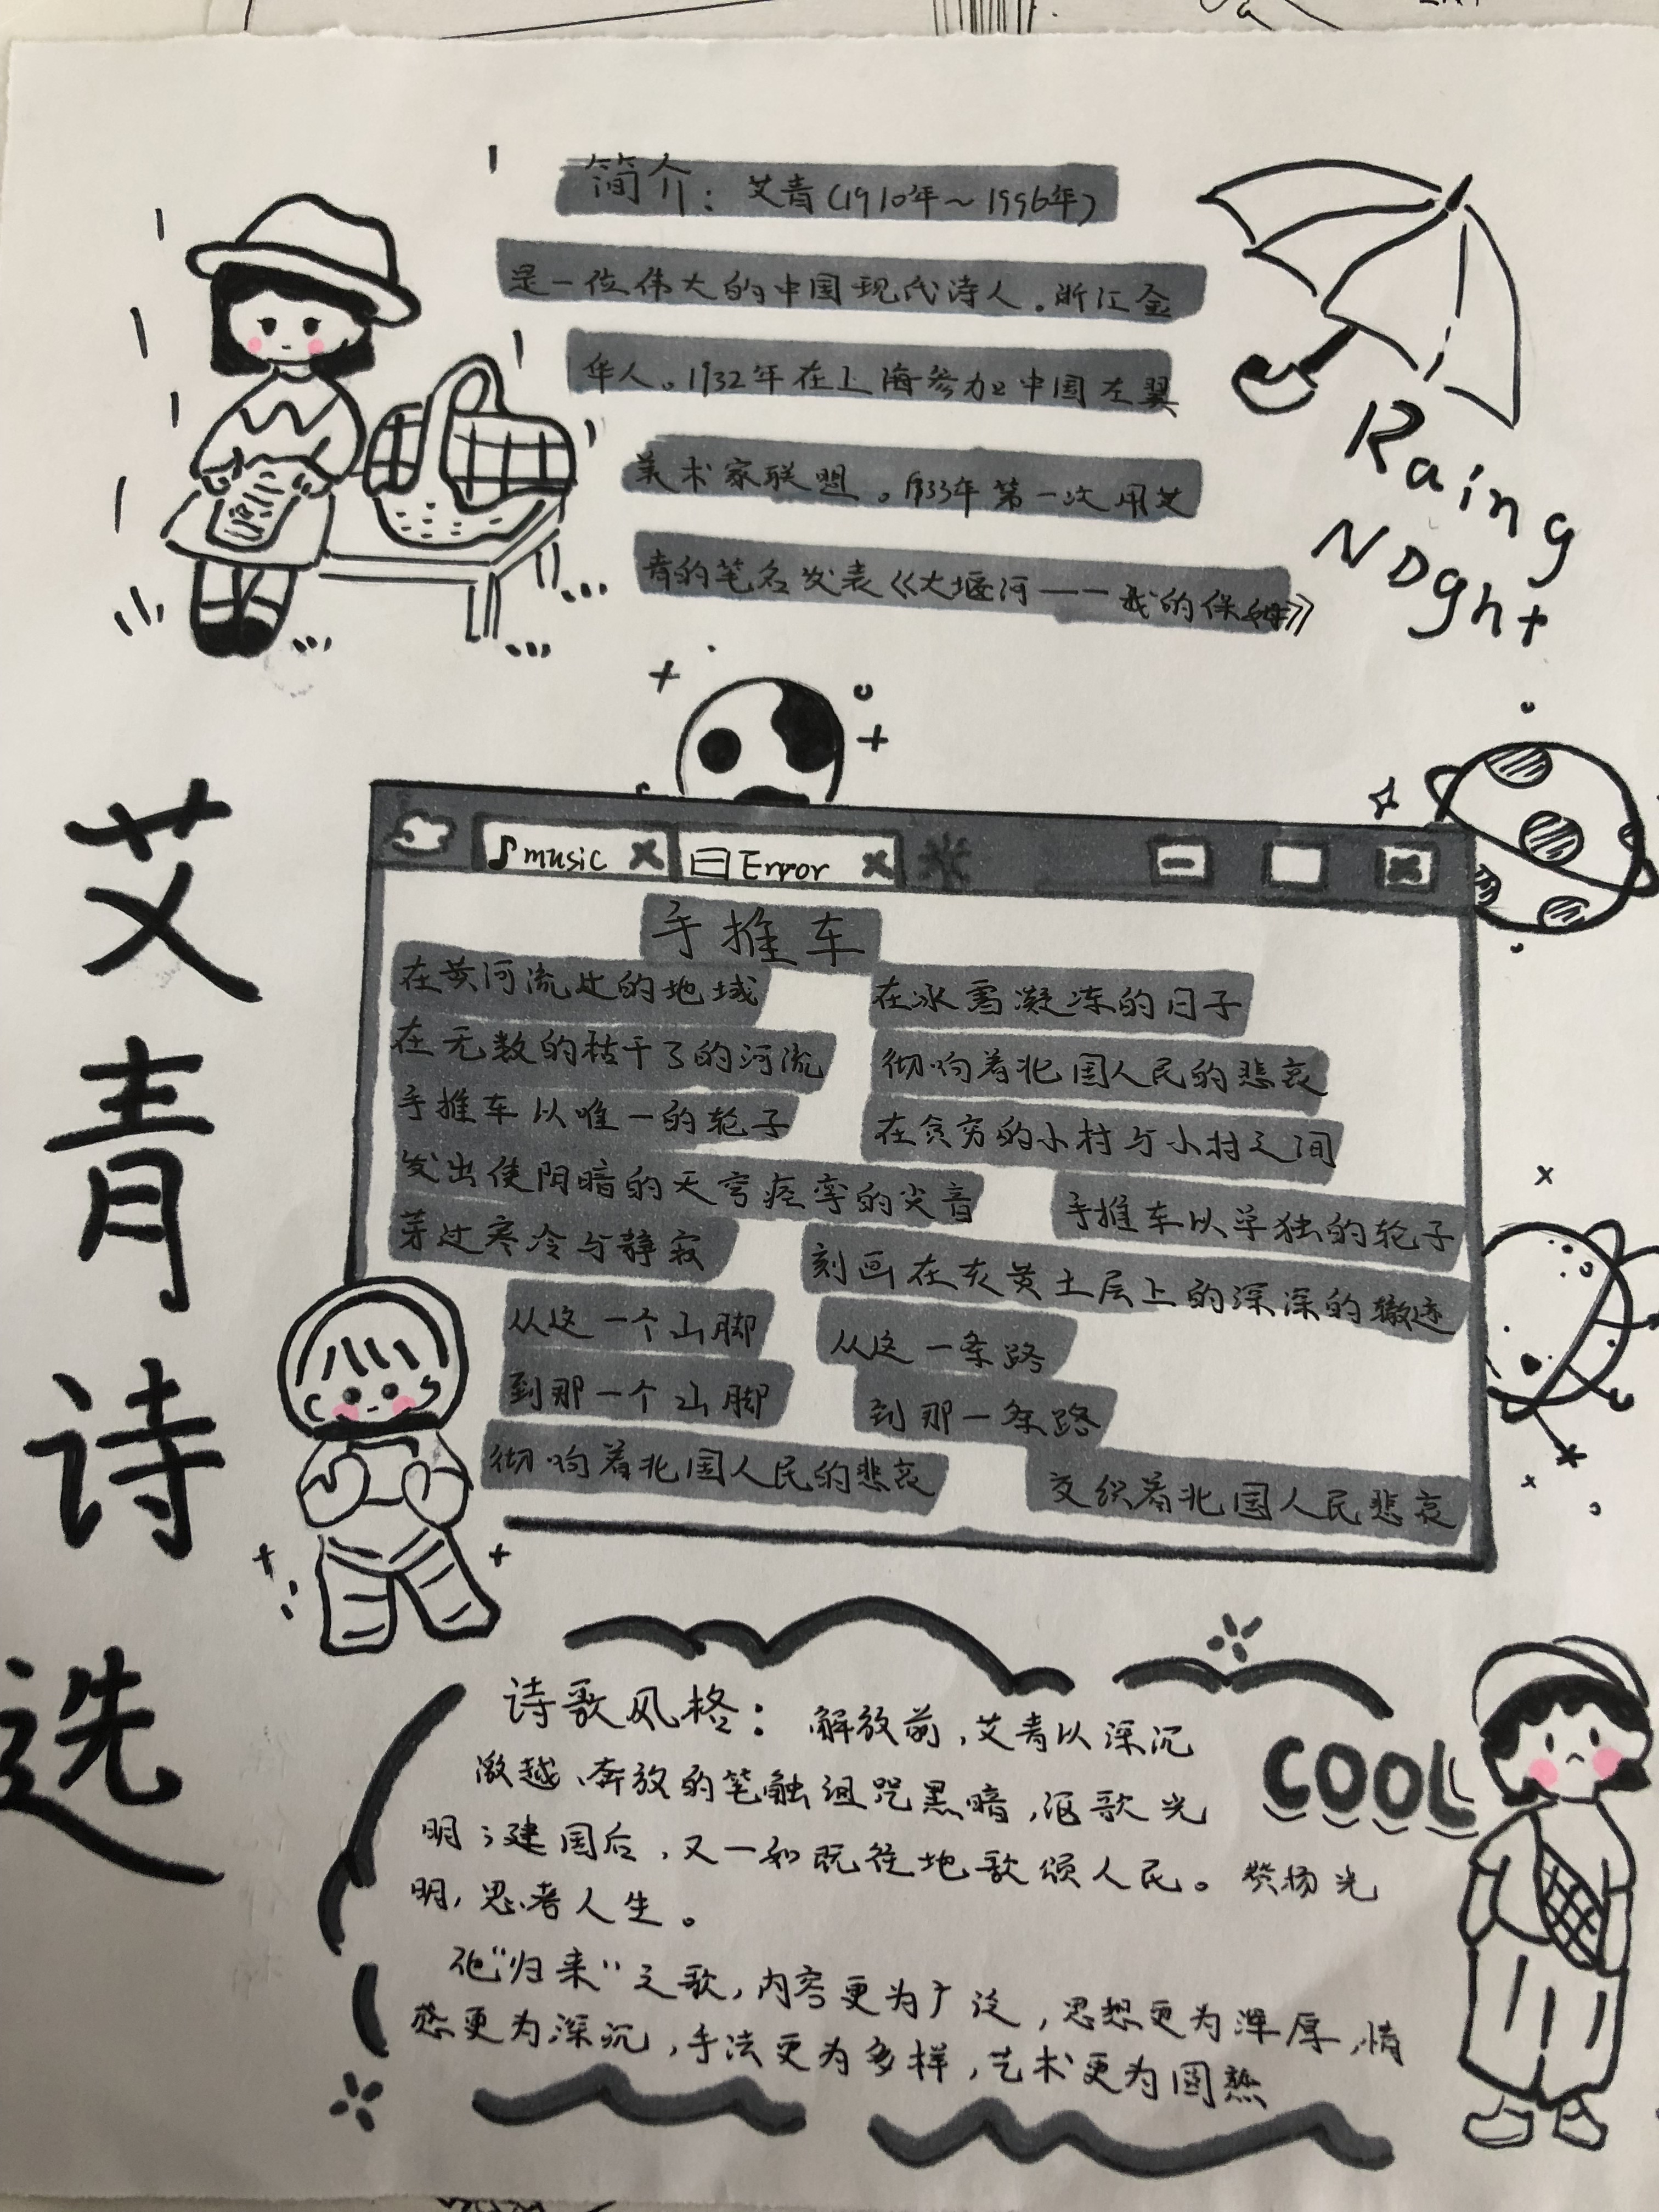 艾青诗选
简介：艾青（1910年～1996年）
是一位伟大的中国现代诗人。浙江金
华人。1932年在上海参加中国左翼
美术家联盟。1933年第一次用艾
青的笔名发表《大堰河——我的保姆》
Raing
NDght
music
Error
手推车
在黄河流过的地域
在无数的枯干了的河流
手推车以唯一的轮子
发出使阴暗的天穹痉挛的尖音
穿过寒冷与静寂
从这一个山脚
到那一个山脚
彻响着北国人民的悲哀
在冰雪凝冻的日子
在贫穷的小村与小村之间
手推车以单独的轮子
刻画在灰黄土层上的深深的辙迹
从这一条路
到那一条路
交织着北国人民悲哀
彻响着北国人民的悲哀
诗歌风格：解放前，艾青以深沉
激越、奔放的笔触诅咒黑暗，讴歌光
明；建国后，又一和既往地歌颂人民。赞扬光
明，思考人生。
他“归来”之歌，内容更为广泛，思想更为浑厚，情
感更为深沉，手法更为多样，艺术更为圆熟
COOL